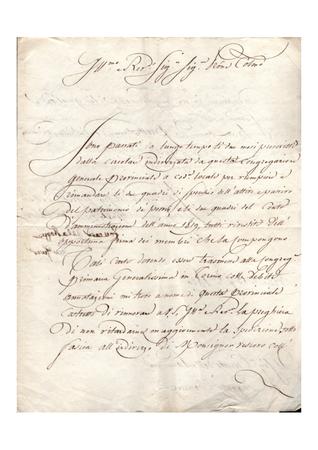 Illmo e Rev. Sigr Sigr Pron Colmo
Sono passati a lungo tempo li due mesi prescritti
dalla circolar indirizzata da questa Congregazione
generale provinciale a cod. locale per riempire e
rimandare li due quadri di specchio dell'attivo e passivo
del patrimonio di e li due quadri del Conto
d'amministrazione dell'anno 1819 tutti rivestiti dell'
opportuna firma dei membri che la compongono
Tale Conto dovendo esser trasmesso alla Congreg.
primaria Generalissima in colle debite
annotazioni mi trovo a nome di questa provinciale
costretto di rinnovare a V.S. Illma e Rev. la preghiera
di non ritardarne maggiormente la spedizione sotto
fascia all'indirizzo di Monsignor Vescovo coll'